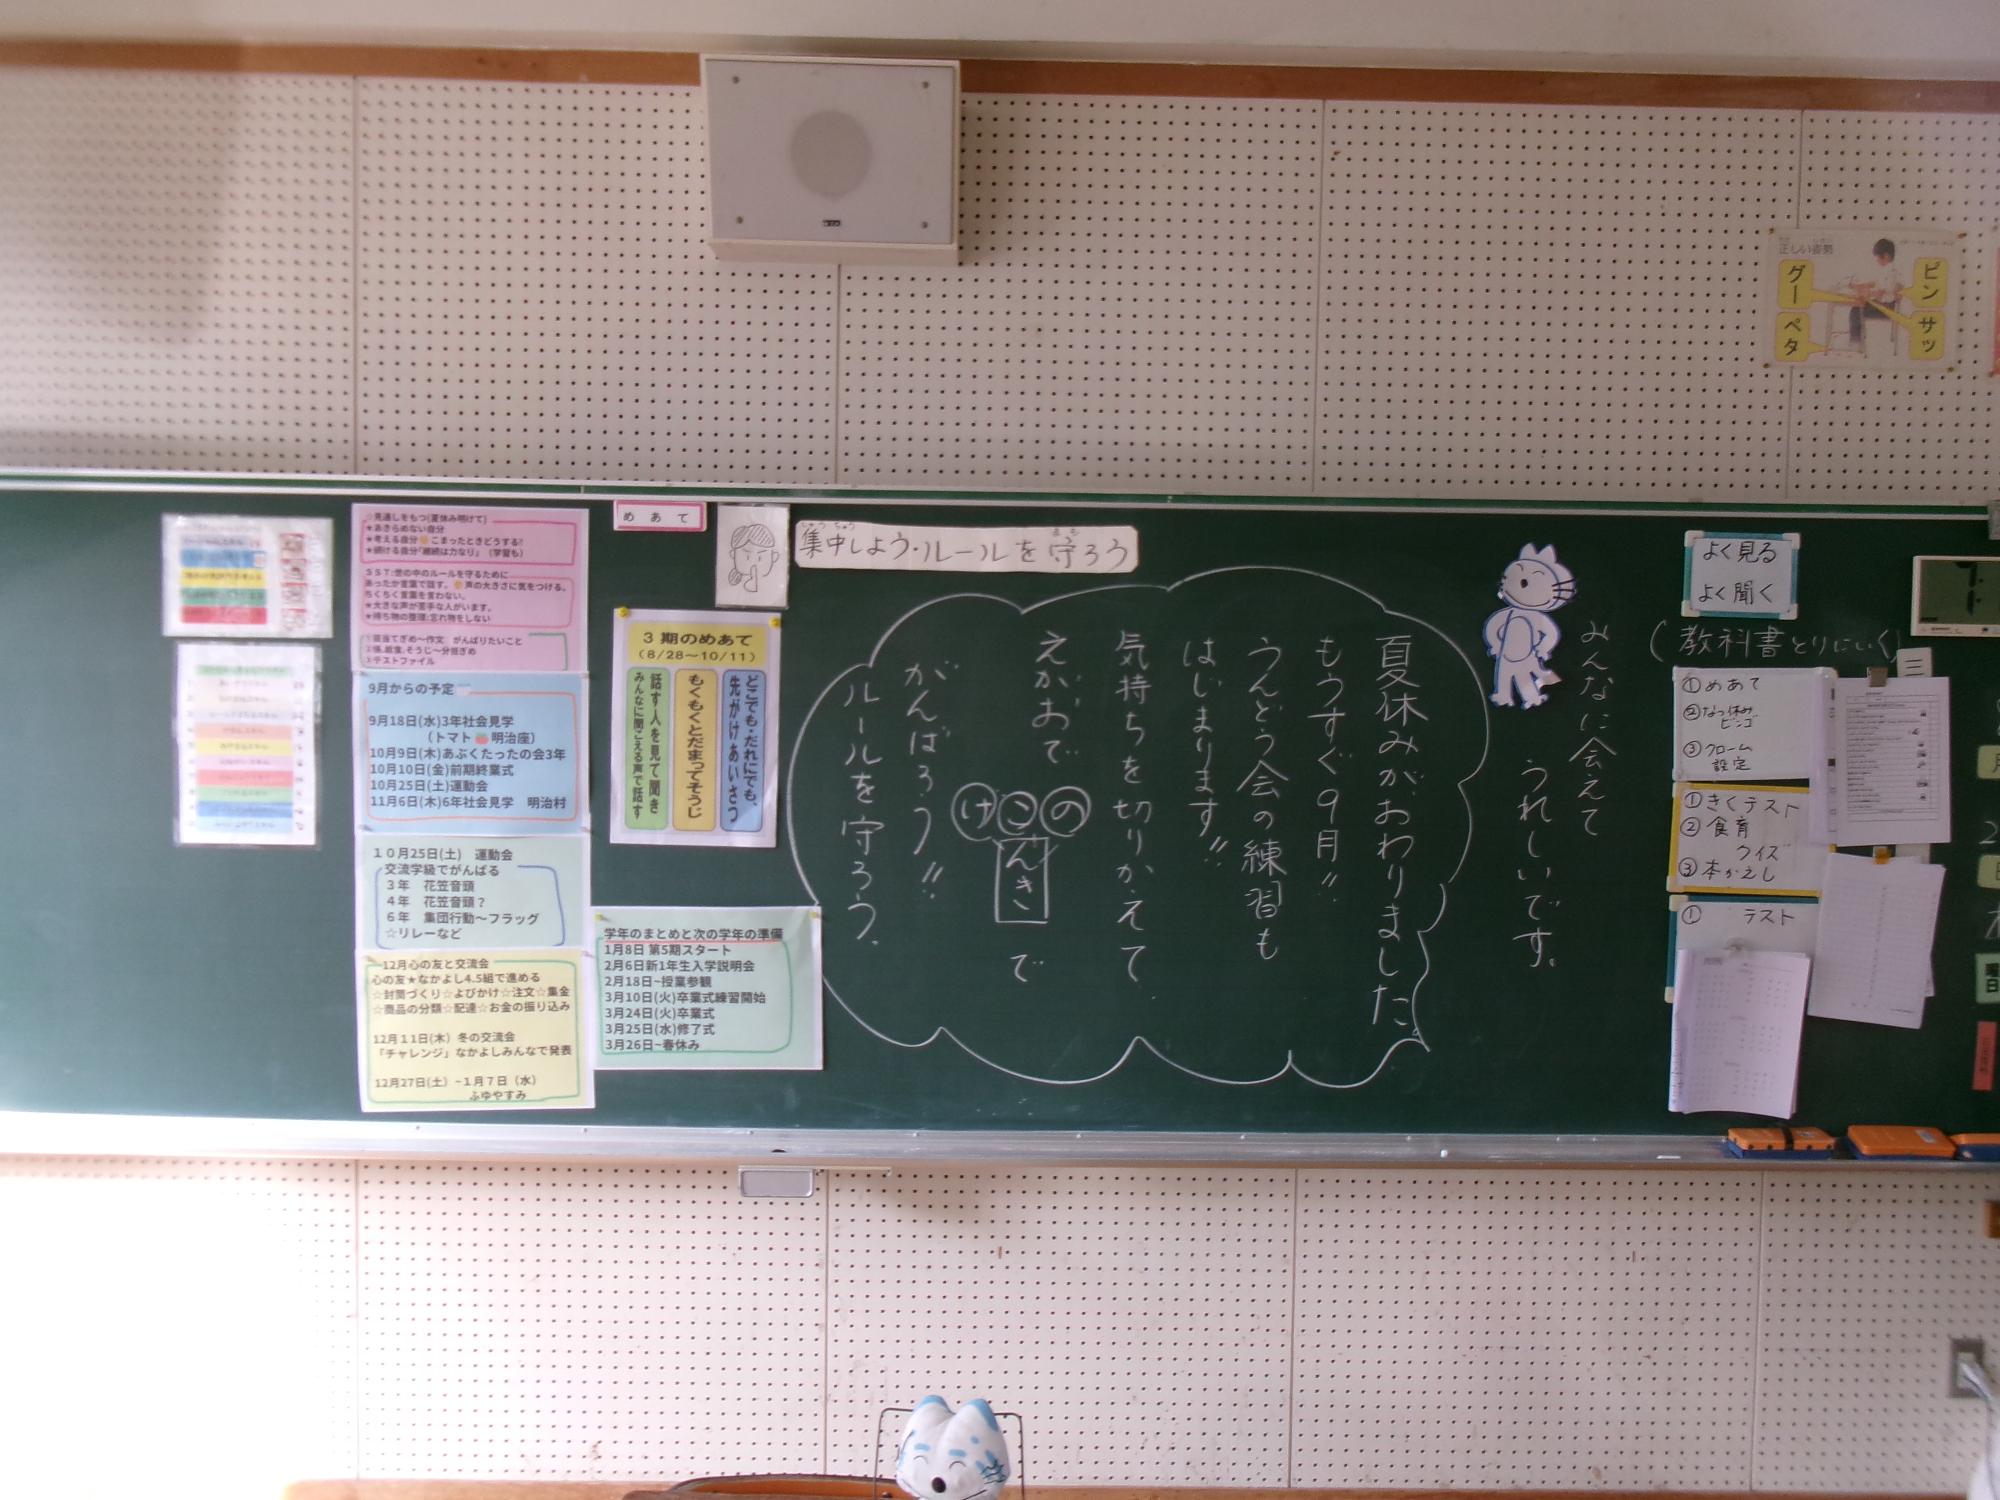 正しい姿勢
グー
ペタ
ピン
サッ
めあて
しゅうちゅう
まも
集中しよう・ルールを守ろう
☆見通しをもつ(夏休み明けて)
★あきらめない自分
★考える自分 こまったときどうする!
★続ける自分「継続は力なり」（学習も）
SST:世の中のルールを守るために
あったか言葉で話す。 声の大きさに気をつける。
ちくちく言葉を言わない。
★大きな声が苦手な人がいます。
★持ち物の整理:忘れ物をしない
テストファイル
9月からの予定
9月18日(水)3年社会見学
（トマト 明治座）
10月9日(木)あぶくたったの会3年
10月10日(金)前期終業式
10月25日(土)運動会
11月6日(木)6年社会見学 明治村
10月25日(土) 運動会
交流学級でがんばる
3年 花笠音頭
4年 花笠音頭？
6年 集団行動～フラッグ
☆リレーなど
12月心の友と交流会
心の友★なかよし4.5組で進める
☆封筒づくり☆よびかけ☆注文☆集金
☆商品の分類☆配達☆お金の振り込み
12月11日(木) 冬の交流会
「チャレンジ」なかよしみんなで発表
12月27日(土) ~1月7日（水）
ふゆやすみ
3期のめあて
（8/28～10/11）
どこでも・だれにでも、
先がけあいさつ
もくもくとだまってそうじ
話す人を見て聞き
みんなに聞こえる声で話す
学年のまとめと次の学年の準備
1月8日 第5期スタート
2月6日新1年生入学説明会
2月18日~授業参観
3月10日(火)卒業式練習開始
3月24日(火)卒業式
3月25日(水)修了式
3月26日~春休み
みんなに会えて
うれしいです。
夏休みがおわりました。
もうすぐ9月!!
うんどう会の練習も
はじまります!!
気持ちを切りかえて、
えがおで
のこけ
んき
で
がんばろう!!
ルールを守ろう。
よく見る
よく聞く
(教科書とりにいく)
三
①めあて
②なつ休み
ビンゴ
③クローム
設定
①きくテスト
②食育
クイズ
③本かえし
① テスト
月
日
曜日